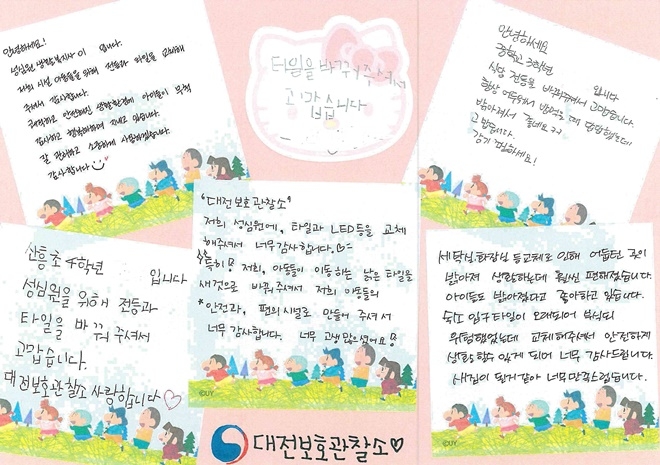 안녕하세요!
성심원 생활복지사 이 입니다.
저희 시설 아동들을 위해 전등과 타일을 교체해
주셔서 감사합니다.
쾌적하고 안전해진 생활환경에 아이들이 무척
감사하고 행복해하며 지내고 있습니다.
잘 관리하고 소중하게 사용하겠습니다.
감사합니다
타일을 바꾸어 주셔서
고맙습니다
안녕하세요
중학교 3학년 입니다
식당 전등을 바꿔줘서 고맙습니다.
항상 어두워서 밥먹을 때 답답했는데
밝아져서 좋네요
고맙습니다.
감기 조심하세요!
산흥초 4학년 입니다
성심원을 위해 전등과
타일을 바꿔 주셔서
고맙습니다.
대전보호관찰소 사랑합니다♡
"대전보호관찰소"
저희 성심원에, 타일과 LED등을 교체
해주셔서 너무 감사합니다.
특히 저희, 아동들이 이동하는 낡은 타일을
새것으로 바꿔 주셔서 저희 아동들의
*안전과, 편의시설로 만들어 주셔서
너무 감사합니다. 너무 고생 많으셨어요
©UY
세탁실, 화장실 등교체로 인해 어둡던 곳이
밝아져 생활하는데 훨씬 편해졌습니다.
아이들도 밝아졌다고 좋아하고 있습니다.
숙소 입구 타일이 오래되어 부식되
위험했었는데 교체해주셔서 안전하게
생활할수 있게 되어 너무 감사드립니다.
새집이 된거 같아 너무 만족스럽습니다.
©UY
대전보호관찰소♡